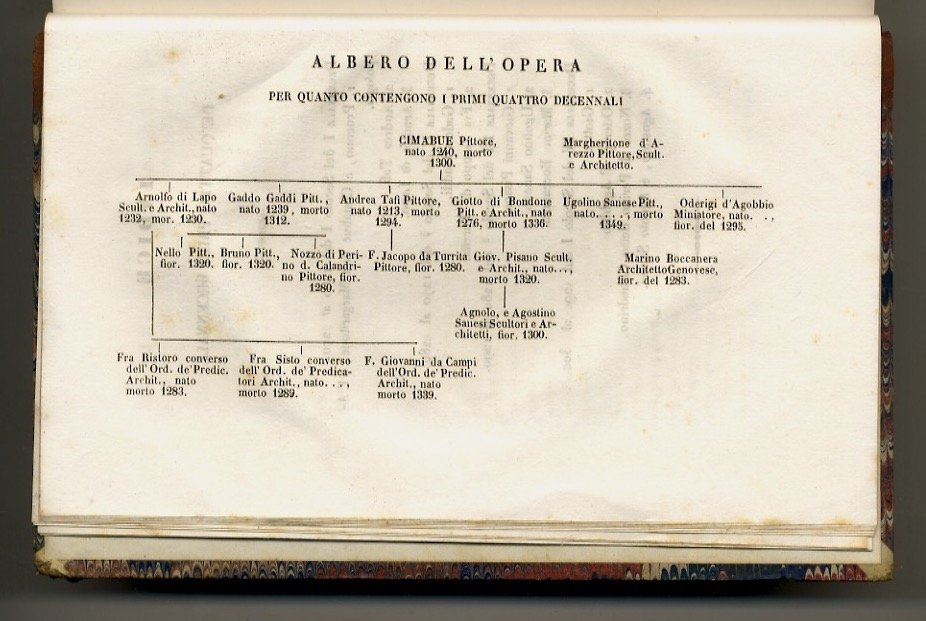 ALBERO DELL' OPERA
PER QUANTO CONTENGONO I PRIMI QUATTRO DECENNALI
CIMABUE Pittore,
nato 1240, morto
1300.
Margheritone d'A-
rezzo Pittore, Scult.
e Architetto.
Arnolfo di Lapo
Scult. e Archit., nato
1232, mor. 1230.
Gaddo Gaddi Pitt.,
nato 1239, morto
1312.
Andrea Tafi Pittore,
nato 1213, morto
1294.
Giotto di Bondone
Pitt. e Archit., nato
1276, morto 1336.
Ugolino Sanese Pitt.,
nato. . . . , morto
1349.
Oderigi d'Agobbio
Miniatore, nato. . ,
fior. del 1295.
Nello Pitt.,
fior. 1320.
Bruno Pitt.,
fior. 1320.
Nozzo di Peri-
no d. Calandri-
no Pittore, fior.
1280.
F. Jacopo da Turrita
Pittore, fior. 1280.
Giov. Pisano Scult.
e Archit., nato...,
morto 1320.
Marino Boccanera
Architetto Genovese,
fior. del 1283.
Agnolo, e Agostino
Sanesi Scultori e Ar-
chitetti, fior. 1300.
Fra Ristoro converso
dell' Ord. de' Predic.
Archit., nato
morto 1283.
Fra Sisto converso
dell' Ord. de' Predica-
tori Archit., nato. . . ,
morto 1289.
F. Giovanni da Campi
dell' Ord. de' Predic.
Archit., nato
morto 1339.